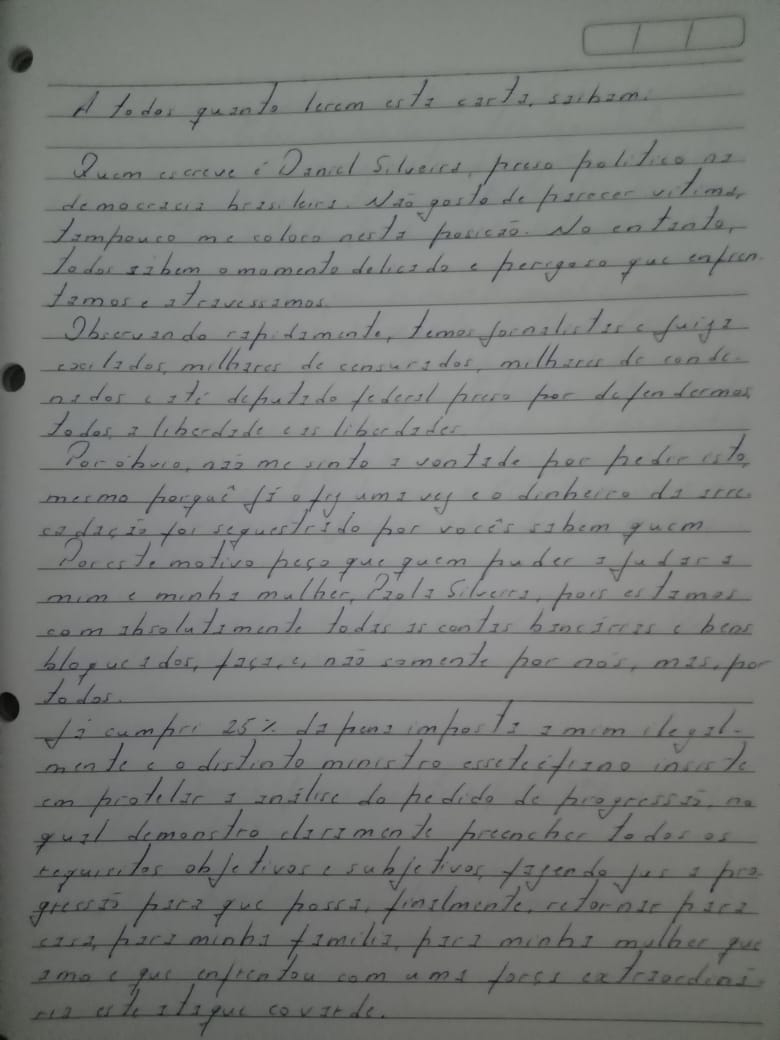 A todos quanto lerem esta carta, saibam:
Quem escreve é Daniel Silveira, preso politico na
democracia brasileira. Não gosto de parecer vítima,
tampouco me coloco nesta posição. No entanto,
todos sabem o momento delicado e perigoso que enfren-
tamos e atravessamos.
Observando rapidamente, temos jornalistas e juiza
exilados, milhares de censurados, milhares de conde-
nados e até deputado federal preso por defendermos,
todos, a liberdade e as liberdades.
Por óbvio, não me sinto a vontade por pedir isto,
mesmo porquê já o fiz uma vez e o dinheiro da arre-
cadação foi sequestrado por vocês sabem quem.
Por este motivo peço que quem puder ajudar a
mim e minha mulher, Paola Silveira, pois estamos
com absolutamente todas as contas bancárias e bens
bloqueados, faça, e, não somente por nós, mas, por
todos.
Já cumpri 25% da pena imposta a mim ilegal-
mente e o distinto ministro esseteéfiano insiste
em protelar a análise do pedido de progressão, no
qual demonstro claramente preencher todos os
requisitos objetivos e subjetivos, fazendo jus a pro-
gressão para que possa, finalmente, retornar para
casa, para minha família, para minha mulher que
amo e que enfrentou com uma força extraordiná-
ria este ataque covarde.